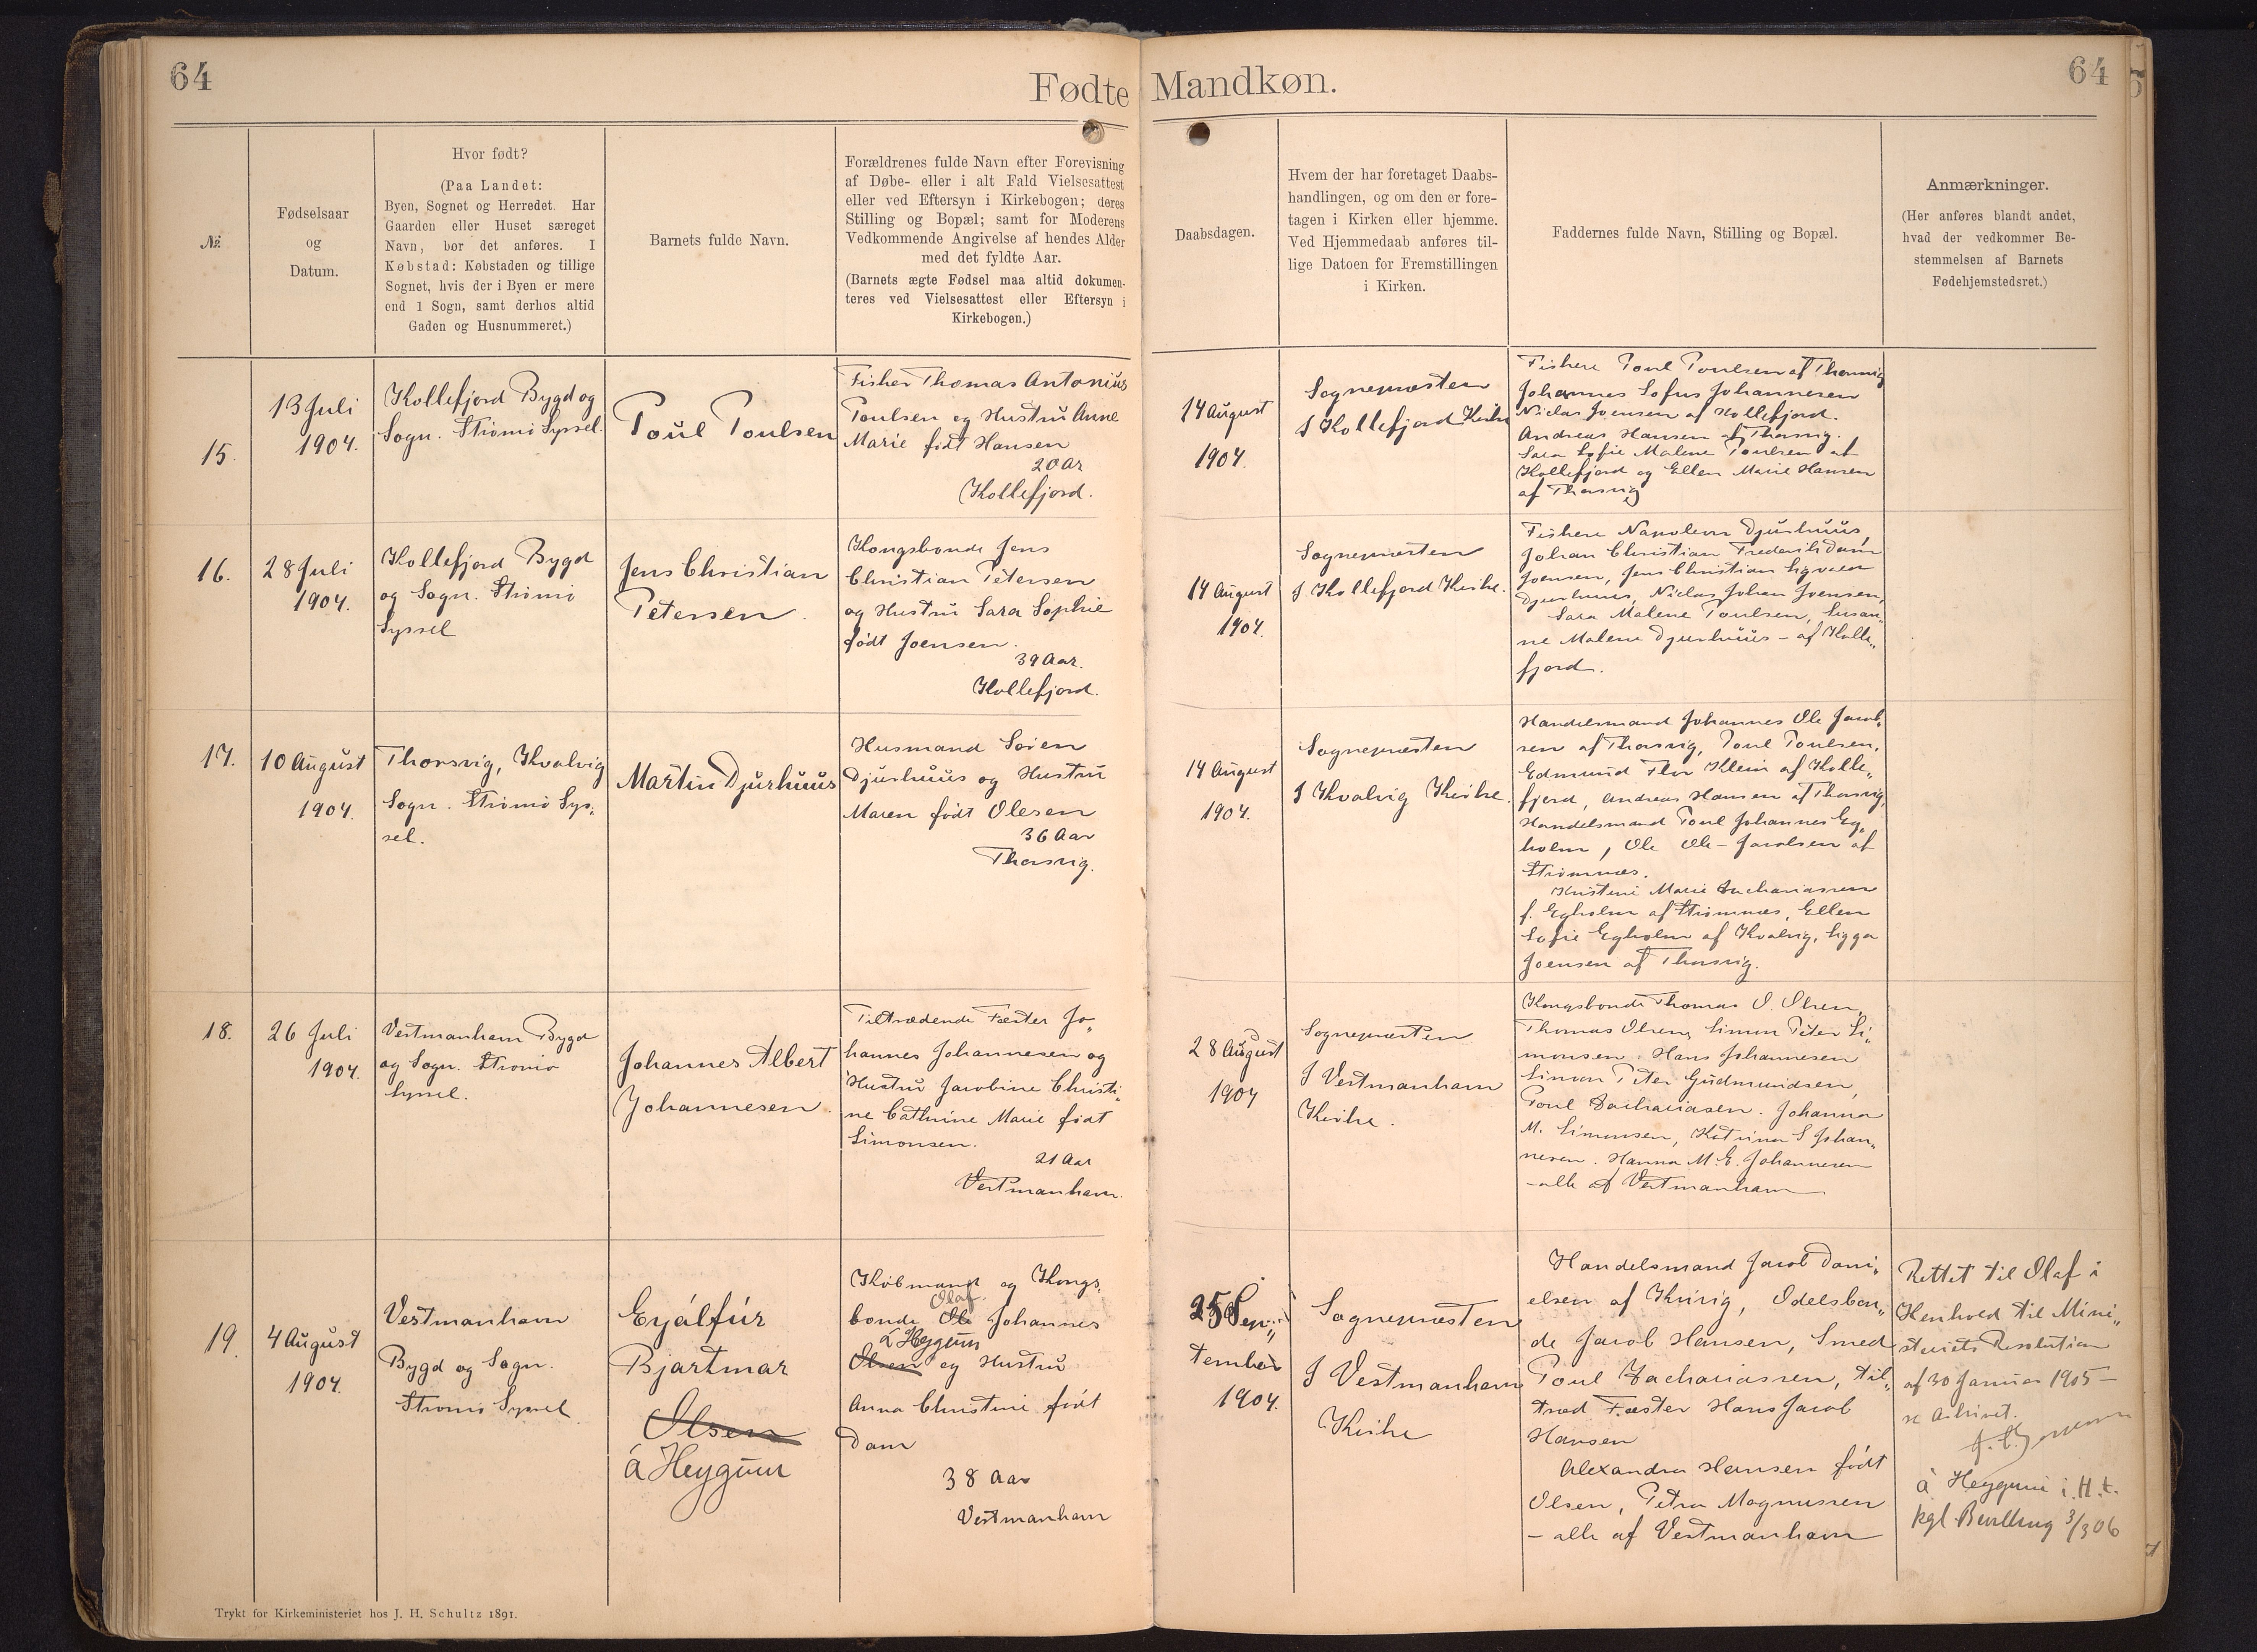 64
Fødte Mandkøn.
64
№
Fødselsaar
og
Datum.
Hvor født?
(Paa Landet:
Byen, Sognet og Herredet. Har
Gaarden eller Huset særeget
Navn, bør det anføres. I
Købstad: Købstaden og tillige
Sognet, hvis der i Byen er mere
end 1 Sogn, samt derhos altid
Gaden og Husnummeret.)
Barnets fulde Navn.
Forældrenes fulde Navn efter Forevisning
af Døbe- eller i alt Fald Vielsesattest
eller ved Eftersyn i Kirkebogen; deres
Stilling og Bopæl; samt for Moderens
Vedkommende Angivelse af hendes Alder
med det fyldte Aar.
(Barnets ægte Fødsel maa altid dokumen-
teres ved Vielsesattest eller Eftersyn i
Kirkebogen.)
Daabsdagen.
Hvem der har foretaget Daabs-
handlingen, og om den er fore-
tagen i Kirken eller hjemme.
Ved Hjemmedaab anføres til-
lige Datoen for Fremstillingen
i Kirken.
Faddernes fulde Navn, Stilling og Bopæl.
Anmærkninger.
(Her anføres blandt andet,
hvad der vedkommer Be-
stemmelsen af Barnets
Fødehjemstedsret.)
15.
13 Juli
1904.
Kollefjord Bygd og
Sogn. Strömö Syssel.
Poul Poulsen
Fisker Thomas Antonius
Poulsen og Hustru Anne
Marie født Hansen
20 Ar
Kollefjord.
14 August
1904.
Sognepræsten
I Kollefjord Kirke
Fiskere Poul Poulsen af Thorsvig
Johannes Sofus Johannesen
Niclas Joensen af Kollefjord.
Andreas Hansen af Thorsvig.
Sara Sofie Malene Poulsen af
Kollefjord og Ellen Marie Hansen
af Thorsvig
16.
28 Juli
1904.
Kollefjord Bygd
og Sogn. Strömö
Syssel
Jens Christian
Petersen.
Kongsbonde Jens
Christian Petersen
og Hustru Sara Sophie
født Joensen.
39 Aar.
Kollefjord.
14 August
1904.
Sognepræsten
I Kollefjord Kirke.
Fiskere Napoleon Djurhuus,
Johan Christian Frederik Dam
Joensen, Jens Christian
Djurhuus, Niclas Johan Joensen,
Sara Malene Poulsen, Susan„
ne Malene Djurhuus - af Kolle„
fjord.
17.
10 August
1904.
Thorsvig, Kvalvig
Sogn. Strömö Sys„
sel.
Martin Djurhuus
Husmand Sören
Djurhuus og Hustru
Maren født Olesen
36 Aar
Thorsvig.
14 August
1904.
Sognepræsten
I Kvalvig Kirke.
Handelsmand Johannes Ole Jacob„
sen af Thorsvig, Poul Poulsen,
Edmund Flor Klein af Kolle„
fjord, Andreas Hansen af Thorsvig,
Handelsmand Poul Johannes Eg„
holm, Ole Ole-Jacobsen af
Strömnæs.
Kristine Marie Zachariassen
f. Egholm af Strömnæs, Ellen
Sofie Egholm af Kvalvig, Sigga
Joensen af Thorsvig.
18.
26 Juli
1904.
Vestmanhavn Bygd
og Sogn. Strömö
Syssel.
Johannes Albert
Johannesen.
Tiltrædende Fæster Jo„
hannes Johannesen og
Hustru Jacobine Christi„
ne Cathrine Marie født
Simonsen.
21 Aar
Vestmanhavn.
28 August
1904
Sognepræsten
I Vestmanhavn
Kirke.
Kongsbonde Thomas O. Olsen,
Thomas Olsen, Simon Peter Si„
monsen, Hans Johannesen
Simon Peter Gudmundsen,
Poul Zachariasen. Johanna
M. Simonsen, Katrina S Johan„
nesen. Hanna M. E. Johannesen
- alle af Vestmanhavn
19.
4 August
1904.
Vestmanhavn
Bygd og Sogn.
Strömö Syssel
Eyálfúr
Bjartmar
Olsen
á Heygum
Købmand og Kongs„
Olaf
bonde Ole Johannes
á Heygum
Olsen og Hustru
Anna Christine født
Dam
38 Aar
Vestmanhavn
25 Sep„
tember
1904.
Sognepræsten
I Vestmanhavn
Kirke
Handelsmand Jacob Dani„
elsen af Kvivig, Odelsbon„
de Jacob Hansen, Smed
Poul Zachariassen, til„
træd Fæster Hans Jacob
Hansen
Alexandra Hansen født
Olsen, Petra Magnussen
- alle af Vestmanhavn
Rettet til Olaf i
Henhold til Mini„
steriets Resolution
af 30 Januar 1905 -
se Arkivet.
á Heygum i. H. t.
kgl. Bevilling 3/3 06
Trykt for Kirkeministeriet hos J. H. Schultz 1891.